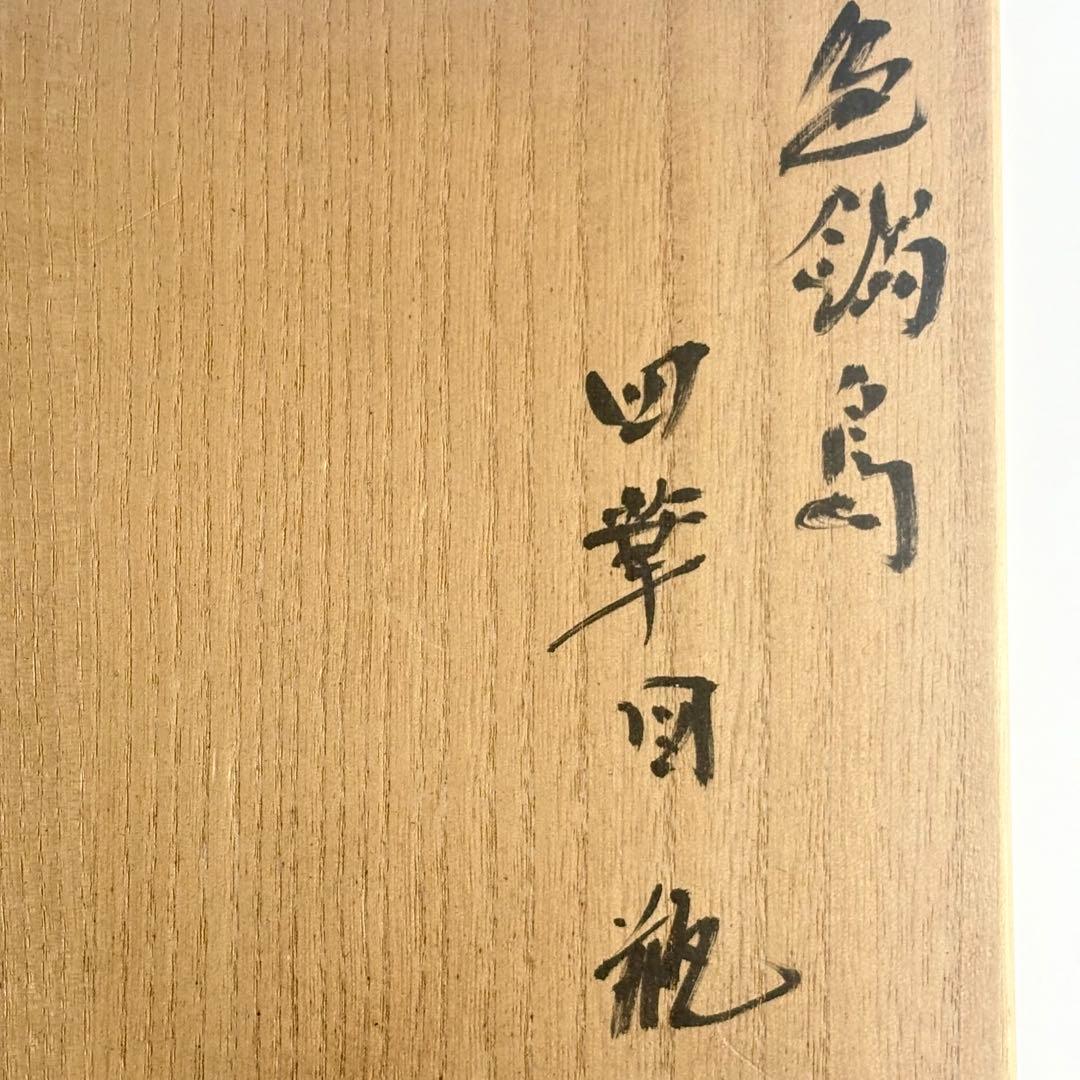 色鍋島
四華図瓶